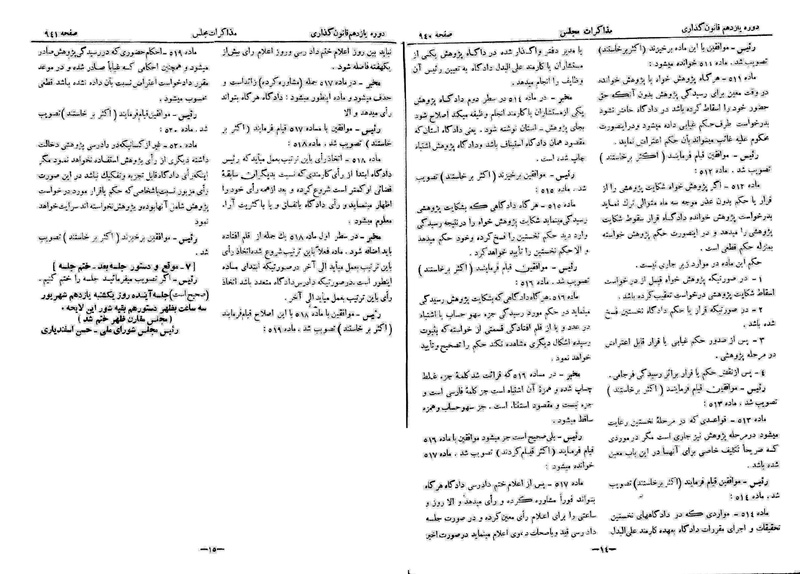 دوره یازدهم قانون گذاری
مذاکرات مجلس
صفحه ۹۴۰
رئیس - موافقین با این ماده برخیزند (اکثر برخاستند)
تصویب شد. ماده ۵۱۱ خوانده میشود:
ماده ۵۱۱ - هرگاه پژوهش خواه یا پژوهش خوانده
در وقت معین برای رسیدگی پژوهش بدون آنکه حق
حضور خود را اسقاط کرده باشد در دادگاه حاضر نشود
بدرخواست طرف حکم غیابی داده میشود و در اینصورت
محکوم علیه غائب میتواند بآن حکم اعتراض نماید.
رئیس - موافقین قیام فرمایند (اکثر برخاستند)
تصویب شد. ماده ۵۱۲:
ماده ۵۱۲ - اگر پژوهش خواه شکایت پژوهشی را از
قرار یا حکم بدون عذر موجه سه ماه متوالی ترک نماید
بدرخواست پژوهش خوانده دادگاه قرار سقوط شکایت
پژوهشی را میدهد و در اینصورت حکم پژوهش خواسته
بمنزله حکم قطعی است.
حکم این ماده در موارد زیر جاری نیست.
۱ - در صورتیکه پژوهش خواه قبل از درخواست
اسقاط شکایت پژوهشی درخواست تعقیب کرده باشد.
۲ - در صورتیکه قرار یا حکم دادگاه نخستین فسخ
شده باشد.
۳ - پس از صدور حکم غیابی یا قرار قابل اعتراض
در مرحله پژوهشی.
۴ - پس از نقض حکم یا قرار براثر رسیدگی فرجامی.
رئیس - موافقین قیام فرمایند (اکثر برخاستند)
تصویب شد. ماده ۵۱۳:
ماده ۵۱۳ - قواعدی که در مرحلهٔ نخستین رعایت
میشود در مرحله پژوهش نیز جاری است مگر در موردی
که صریحاً تکلیف خاصی برای آنها در این باب معین
شده باشد.
رئیس - موافقین قیام فرمایند (اکثر برخاستند) تصویب
شد. ماده ۵۱۴:
ماده ۵۱۴ - مواردی که در دادگاههای نخستین
تحقیقات و اجرای مقررات دادگاه بعهده کارمند علی البدل
یا مدیر دفتر واگذار شده در دادگاه پژوهش یکی از
مستشاران یا کارمند علی البدل دادگاه به تعیین رئیس آن
وظایف را انجام میدهد.
مخبر - در ماده ۵۱۴ در سطر دوم دادگاه پژوهش
یکی از مستشاران یا کارمند انجام وظیفه میکند اصلاح شود
بجای پژوهش - استان نوشته شود. یعنی دادگاه استان که
مقصود همان دادگاه استیناف باشد و دادگاه پژوهش اشتباه
چاپ شده است.
رئیس - موافقین برخیزند (اکثر برخاستند) تصویب
شد. ماده ۵۱۵:
ماده ۵۱۵ - هرگاه دادگاهی که بشکایت پژوهش
رسیدگی مینماید شکایت پژوهش خواه را در نتیجه رسیدگی
وارد دید حکم نخستین را فسخ کرده و خود حکم میدهد
و الا حکم نخستین را تأیید خواهد کرد.
رئیس - موافقین قیام فرمایند (اکثر برخاستند)
تصویب شد. ماده ۵۱۶:
ماده ۵۱۶ - هرگاه دادگاهی که بشکایت پژوهش رسیدگی
مینماید در حکم مورد رسیدگی جزء سهو حساب یا اشتباه
در عدد و یا از قلم افتادگی قسمتی از خواسته که بثبوت
رسیده اشکال دیگری مشاهده نکند حکم را تصحیح و تأیید
خواهد نمود.
مخبر - در ماده ۵۱۶ که قرائت شد کلمهٔ جزء غلط
چاپ شده و همزهٔ آن اشتباه است جز کلمهٔ فارسی است و
جزء نیست و مقصود استثناء است. جز سهو حساب و همزه
ساقط میشود.
رئیس - بلی صحیح است جز میشود موافقین با ماده ۵۱۶
قیام فرمایند (اکثر قیام کردند) تصویب شد. ماده ۵۱۷
خوانده میشود:
ماده ۵۱۷ - پس از اعلام ختم دادرسی دادگاه هرگاه
بتواند فوراً مشاوره کرده و رأی میدهد و الا روز و
ساعتی را برای اعلام رأی معین کرده و در صورت جلسه
دادرسی قید و باصحاب دعوی اعلام مینماید در صورت اخیر
—۱۴—
دوره یازدهم قانون گذاری
مذاکرات مجلس
صفحه ۹۴۱
نباید بین روز اعلام ختم دادرسی و روز اعلام رأی بیش از
یکهفته فاصله شود.
مخبر - در ماده ۵۱۷ جمله (مشاوره کرده) زائد است و
حذف میشود و ماده اینطور میشود: دادگاه هرگاه بتواند
رأی میدهد و الا
رئیس - موافقین با ماده ۵۱۷ قیام فرمایند (اکثر بر
خاستند) تصویب شد. ماده ۵۱۸:
ماده ۵۱۸ - اتخاذ رأی باین ترتیب بعمل میآید که رئیس
دادگاه ابتدا از رأی کارمندی که نسبت بدیگران سابقهٔ
قضائی او کمتر است شروع کرده و بعد از همه رأی خود را
اظهار مینماید و رأی دادگاه باتفاق و یا با اکثریت آراء
معلوم میشود.
مخبر - در سطر اول ماده ۵۱۸ یک جمله از قلم افتاده
باید اضافه شود. ماده فعلاً باین ترتیب شروع شده اتخاذ رأی
باین ترتیب بعمل میآید الی آخر در صورتیکه ابتدای ماده
اینطور است در صورتیکه دادرس دادگاه متعدد باشد اتخاذ
رأی باین ترتیب بعمل میآید الی آخر.
رئیس - موافقین با ماده ۵۱۸ با این اصلاح قیام فرمایند
(اکثر برخاستند) تصویب شد. ماده ۵۱۹:
ماده ۵۱۹ - احکام حضوری که در رسیدگی پژوهش صادر
میشود و همچنین احکامی که غیاباً صادر شده و در موعد
مقرر دادخواست اعتراض نسبت بآن داده نشده باشد قطعی
محسوب میشود.
رئیس - موافقین قیام فرمایند (اکثر برخاستند) تصویب
شد. ماده ۵۲۰:
ماده ۵۲۰ - غیر از کسانیکه در دادرسی پژوهشی دخالت
داشته دیگری از رأی پژوهش استفاده نخواهد نمود مگر
اینکه رأی دادگاه قابل تجزیه و تفکیک نباشد در این صورت
رأی مزبور نسبت باشخاصی که حکم یا قرار مورد درخواست
پژوهش شامل آنها بوده و پژوهش نخواسته اند سرایت خواهد
کرد.
رئیس - موافقین برخیزند (اکثر برخاستند) تصویب
شد.
[۷ - موقع و دستور جلسه بعد - ختم جلسه]
رئیس - اگر تصویب میفرمائید جلسه را ختم کنیم.
(صحیح است) جلسه آینده روز یکشنبه یازدهم شهریور
سه ساعت بظهر دستور هم بقیه شور این لایحه.
(مجلس مقارن ظهر ختم شد)
رئیس مجلس شورای ملی - حسن اسفندیاری
—۱۵—